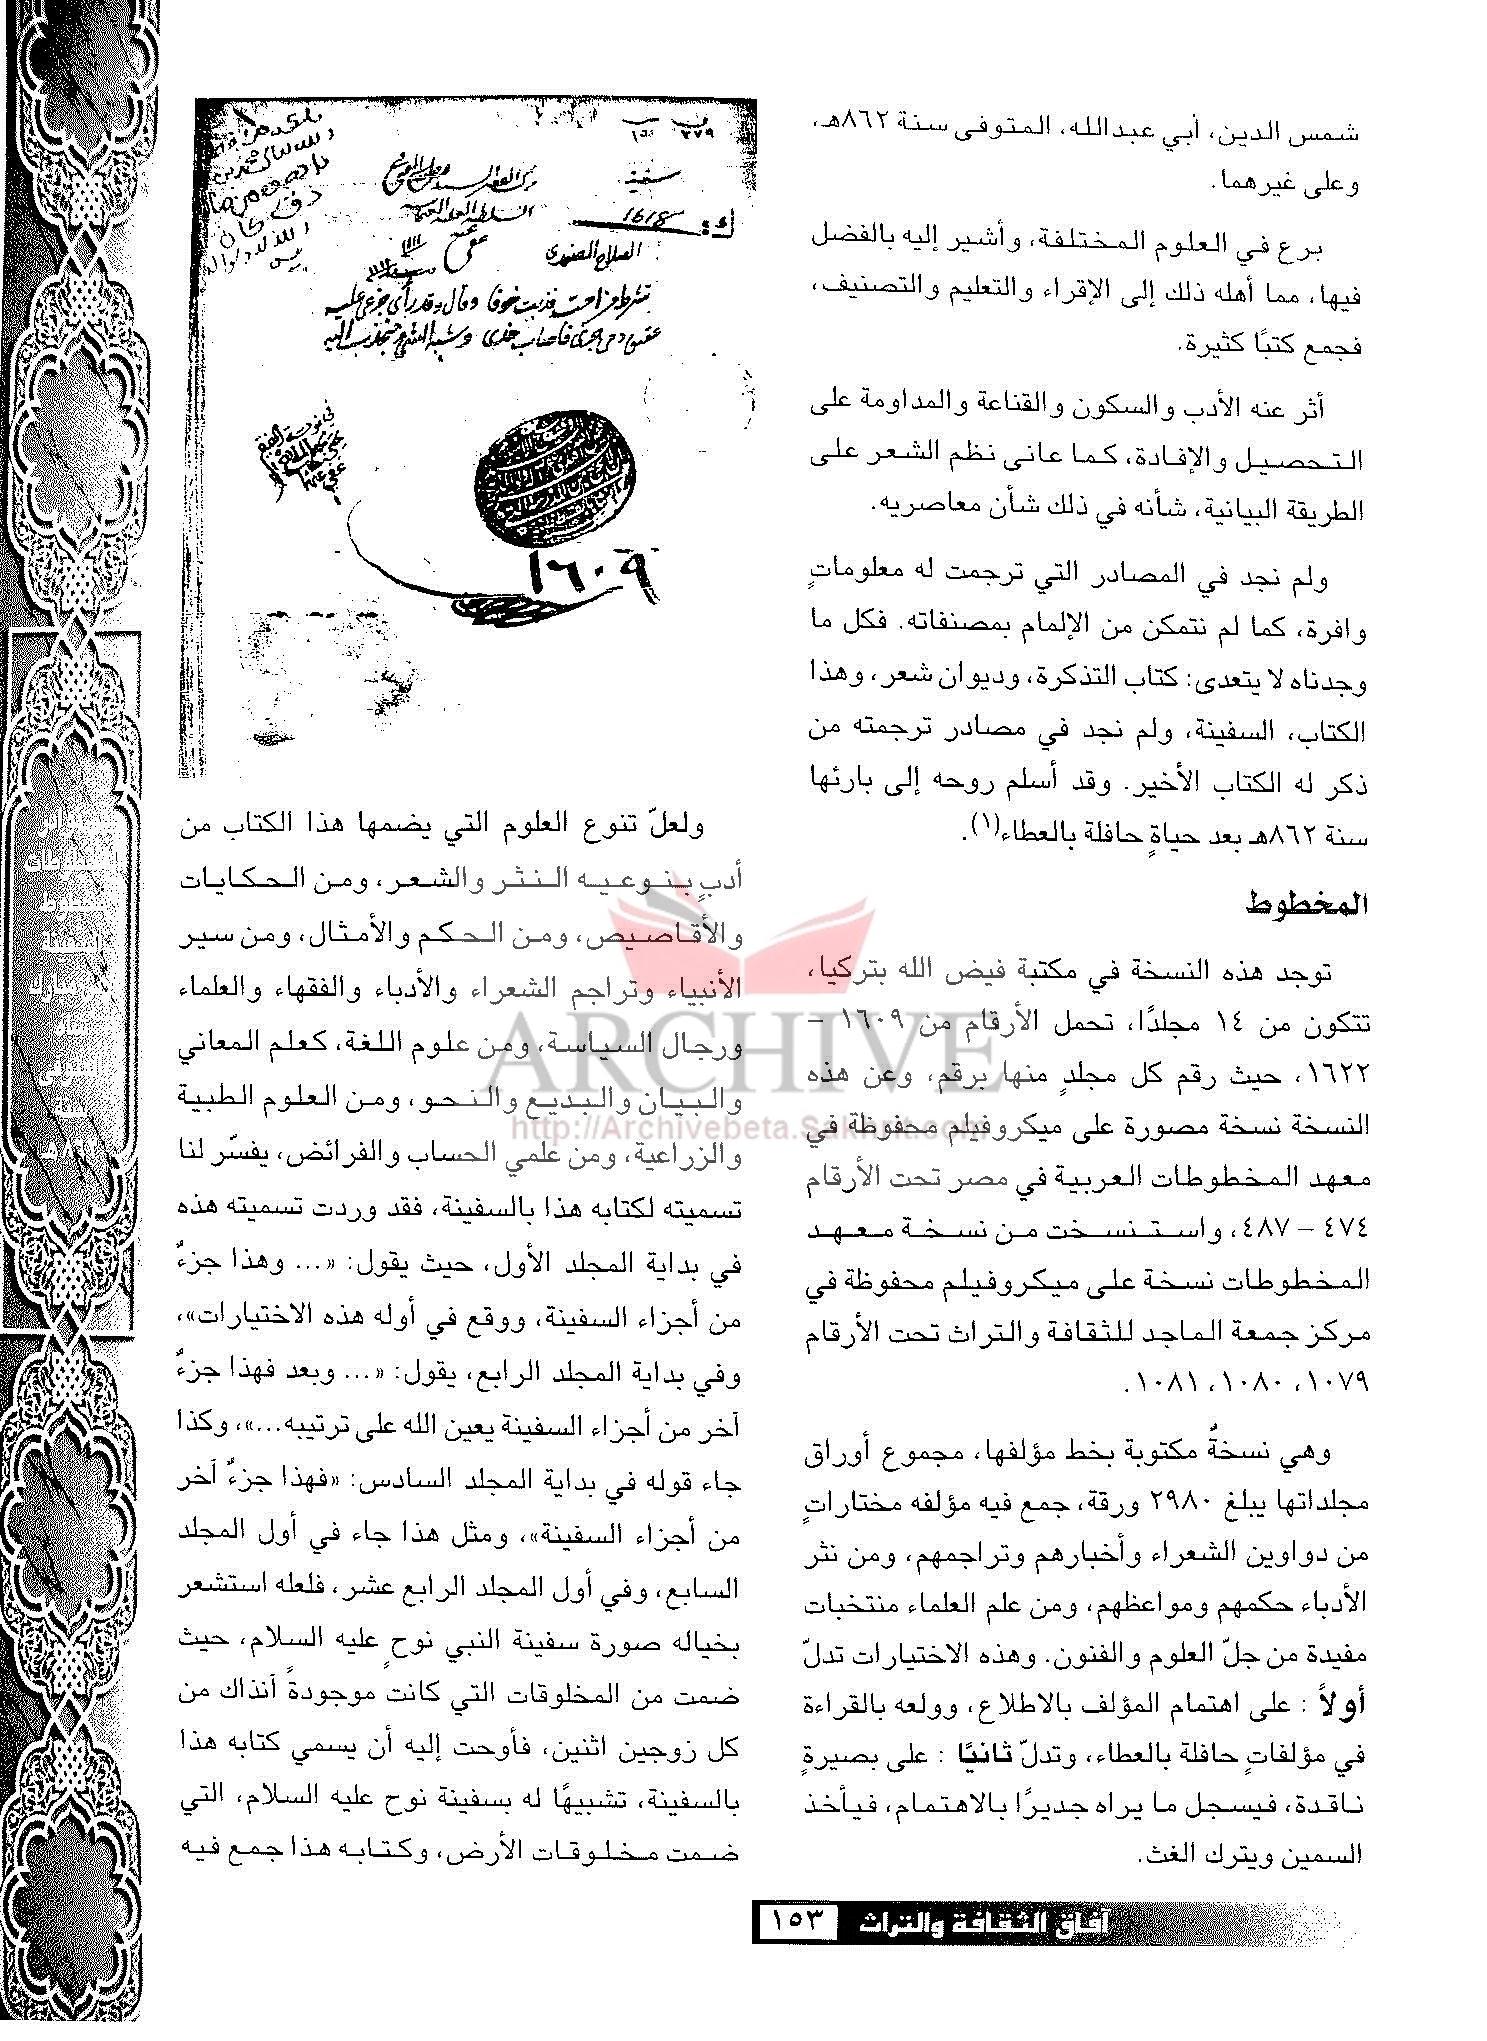 شمس الدين، أبي عبدالله، المتوفى سنة ٨٦٢هـ،
وعلى غيرهما.
برع في العلوم المختلفة، وأشير إليه بالفضل
فيها، مما أهله ذلك إلى الإقراء والتعليم والتصنيف،
فجمع كتبًا كثيرة.
أثر عنه الأدب والسكون والقناعة والمداومة على
التحصيل والإفادة، كما عانى نظم الشعر على
الطريقة البيانية، شأنه في ذلك شأن معاصريه.
ولم نجد في المصادر التي ترجمت له معلوماتٍ
وافرة، كما لم نتمكن من الإلمام بمصنفاته. فكل ما
وجدناه لا يتعدى: كتاب التذكرة، وديوان شعر، وهذا
الكتاب، السفينة، ولم نجد في مصادر ترجمته من
ذكر له الكتاب الأخير. وقد أسلم روحه إلى بارئها
سنة ٨٦٢هـ بعد حياةٍ حافلة بالعطاء(١).
المخطوط
توجد هذه النسخة في مكتبة فيض الله بتركيا،
تتكون من ١٤ مجلدًا، تحمل الأرقام من ١٦٠٩ –
١٦٢٢، حيث رقم كل مجلدٍ منها برقم، وعن هذه
النسخة نسخة مصورة على ميكروفيلم محفوظة في
معهد المخطوطات العربية في مصر تحت الأرقام
٤٧٤ – ٤٨٧، واستنسخت من نسخة معهد
المخطوطات نسخة على ميكروفيلم محفوظة في
مركز جمعة الماجد للثقافة والتراث تحت الأرقام
١٠٧٩، ١٠٨٠، ١٠٨١.
وهي نسخةٌ مكتوبة بخط مؤلفها، مجموع أوراق
مجلداتها يبلغ ٢٩٨٠ ورقة، جمع فيه مؤلفه مختاراتٍ
من دواوين الشعراء وأخبارهم وتراجمهم، ومن نثر
الأدباء حكمهم ومواعظهم، ومن علم العلماء منتخبات
مفيدة من جلّ العلوم والفنون. وهذه الاختيارات تدلّ
أولاً : على اهتمام المؤلف بالاطلاع، وولعه بالقراءة
في مؤلفاتٍ حافلة بالعطاء، وتدلّ ثانيًا : على بصيرةٍ
ناقدة، فيسجل ما يراه جديرًا بالاهتمام، فيأخذ
السمين ويترك الغث.
٣٧٩
سفينة
١٦١٤
الصلاح الصفدي
١٦٠٩
ولعلّ تنوع العلوم التي يضمها هذا الكتاب من
أدبٍ بنوعيه النثر والشعر، ومن الحكايات
والأقاصيص، ومن الحكم والأمثال، ومن سير
الأنبياء وتراجم الشعراء والأدباء والفقهاء والعلماء
ورجال السياسة، ومن علوم اللغة، كعلم المعاني
والبيان والبديع والنحو، ومن العلوم الطبية
والزراعية، ومن علمي الحساب والفرائض، يفسّر لنا
تسميته لكتابه هذا بالسفينة، فقد وردت تسميته هذه
في بداية المجلد الأول، حيث يقول: «... وهذا جزءٌ
من أجزاء السفينة، ووقع في أوله هذه الاختيارات»،
وفي بداية المجلد الرابع، يقول: «... وبعد فهذا جزءٌ
آخر من أجزاء السفينة يعين الله على ترتيبه...»، وكذا
جاء قوله في بداية المجلد السادس: «فهذا جزءٌ آخر
من أجزاء السفينة»، ومثل هذا جاء في أول المجلد
السابع، وفي أول المجلد الرابع عشر، فلعله استشعر
بخياله صورة سفينة النبي نوحٍ عليه السلام، حيث
ضمت من المخلوقات التي كانت موجودةً آنذاك من
كل زوجين اثنين، فأوحت إليه أن يسمي كتابه هذا
بالسفينة، تشبيهًا له بسفينة نوح عليه السلام، التي
ضمت مخلوقات الأرض، وكتابه هذا جمع فيه
ARCHIVE
آفاق الثقافة والتراث ١٥٣